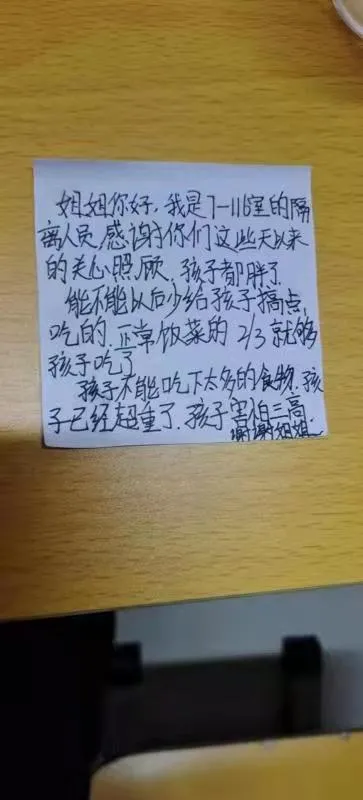 姐姐你好，我是7-116室的隔
离人员，感谢你们这些天以来
的关心照顾，孩子都胖了
能不能以后少给孩子搞点
吃的，正常饭菜的2/3就够
孩子吃了
孩子不能吃下太多的食物，孩
子已经超重了，孩子害怕三高，
谢谢姐姐